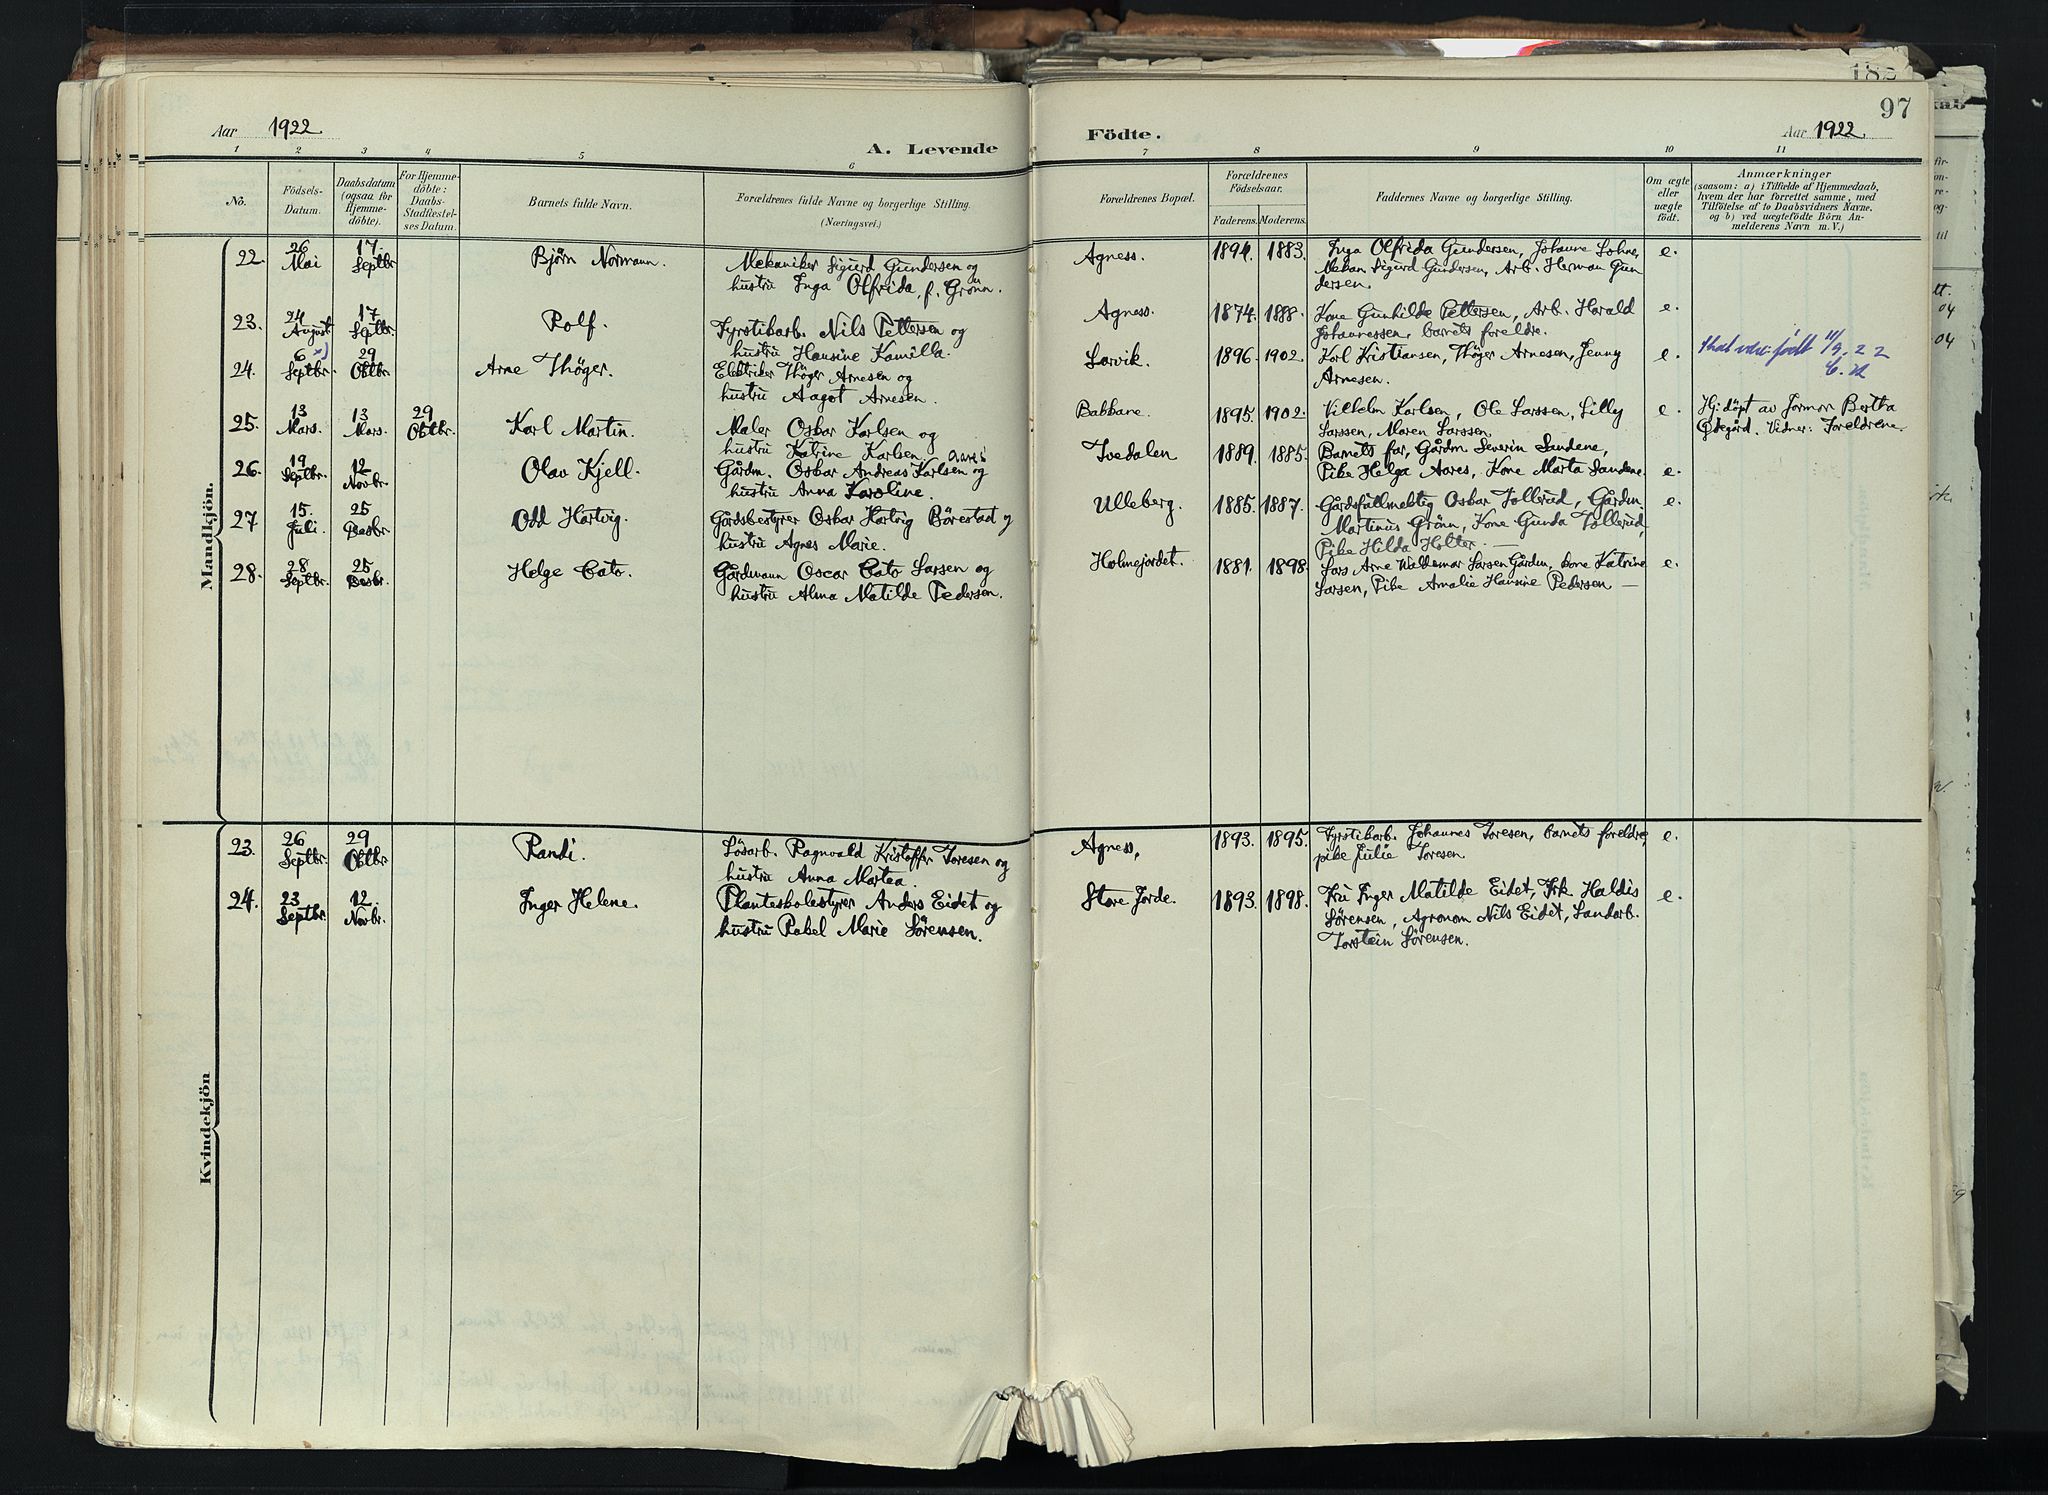 182
97
Aar 1922.
A. Levende
Födte.
Aar 1922.
1 2 3 4 5 6 7 8 9 10 11
No.
Födsels-
Datum.
Daabsdatum
(ogsaa for
Hjemme-
döbte).
For Hjemme-
döbte:
Daabs-
Stadfæstel-
ses Datum.
Barnets fulde Navn.
Forældrenes fulde Navne og borgerlige Stilling.
(Næringsvei.)
Forældrenes Bopæl.
Forældrenes
Födselsaar.
Faderens. Moderens.
Faddernes Navne og borgerlige Stilling.
Om ægte
eller
uægte
födt.
Anmærkninger
(saasom: a) i Tilfælde af Hjemmedaab,
hvem der har forrettet samme, med
Tilföielse af to Daabsvidners Navne.
og b) ved uægtefödte Börn An-
melderens Navn m. V.)
Mandkjön.
22. 26 Mai 17. Septbr Bjørn Normann. Mekaniker Sigurd Gundersen og
hustru Inga Olfrida, f. Grønn.
Agness. 1894. 1883. Inga Olfrida Gundersen, Johanne Lohne,
Mekan. Sigurd Gundersen, Arb. Herman Gun
dersen.
e.
23. 24 August 17 Septbr. Rolf. Fyrstikarb. Nils Pettersen og
hustru Hansine Kamilla.
Agness. 1874. 1888. Kone Gunhilde Pettersen, Arb. Harald
Johannessen, barnets foreldre.
e.
24. 6 x) Septbr. 29 Oktbr. Arne Thøger. Elektriker Thøger Arnesen og
hustru Aagot Arnesen.
Larvik. 1896. 1902. Karl Kristiansen, Thøger Arnesen, Jenny
Arnesen.
e. skal være født 11/9. 22
25. 13 Mars. 13 Mars. 29 Oktbr. Karl Martin. Maler Oskar Karlsen og
hustru Katrine Karlsen
Bakkane. 1895. 1902. Vilhelm Karlsen, Ole Larssen, Lilly
Larssen, Maren Larssen.
e. Hj: døpt av Jormor Bertha
Ødegård. Vidner: Foreldrene.
26. 19 Septbr. 12 Novbr. Olav Kjell. Gårdm. Oskar Andreas Karlsen og
hustru Anna Karoline.
Tvedalen 1889. 1885. Barnets far, Gårdm Severin Sandene,
Pike Helga Aares, Kone Marta Sandene.
e.
27 15. Juli. 25 Desbr. Odd Hartvig. Gårdsbestyrer Oskar Hartvig Børestad og
hustru Agnes Marie.
Ulleberg. 1885. 1887. Gårdsfullmektig Oskar Tollerud, Gårdm.
Martinus Grønn, Kone Gunda Tollerud,
Pike Hilda Holter. —
e.
28. 28 Septbr. 25 Desbr. Helge Cato. Gårdmann Oscar Cato Larsen og
hustru Alma Matilde Pedersen.
Holmejordet. 1881. 1898. Lars Arne Waldemar Larsen Gårdm, kone Katrine
Larsen, Pike Amalie Hansine Pedersen —
e.
Kvindekjön
23. 26 Septbr. 29 Oktbr Randi. Løsarb. Ragnvald Kristoffer Toresen og
hustru Anna Martea.
Agness, 1893. 1895. Fyrstikarb. Johannes Toresen, barnets foreldre,
pike Julie Toresen.
e.
24. 23 Septbr. 12. Novbr. Inger Helene. Planteskolestyrer Anders Eidet og
hustru Rakel Marie Sörensen.
Store Jorde. 1893. 1898. Fru Inger Matilde Eidet, Frk Haldis
Sørensen, Agronom Nils Eidet, Landarb.
Torstein Sørensen.
e.